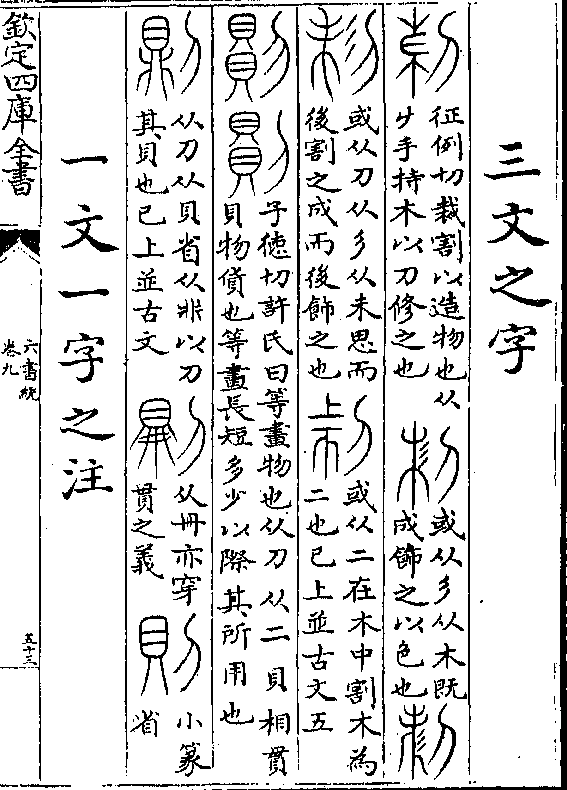 三文之字
征例切裁割以造物也从
手持木以刀修之也
或从彡从木既
成飾之以色也
或从刀从彡从未思而
後割之成而後飾之也
或从二在木中割木為
二也已上並古文五
子德切許氏曰等畫物也从刀从二貝相貫
貝物貨也等畫長短多少以際其所用也
从刀从貝省从以刀
其貝也已上並古文
从冊亦穿
貫之義
小篆
省
一文一字之注
欽定四庫全書
六書統
卷九
五十三